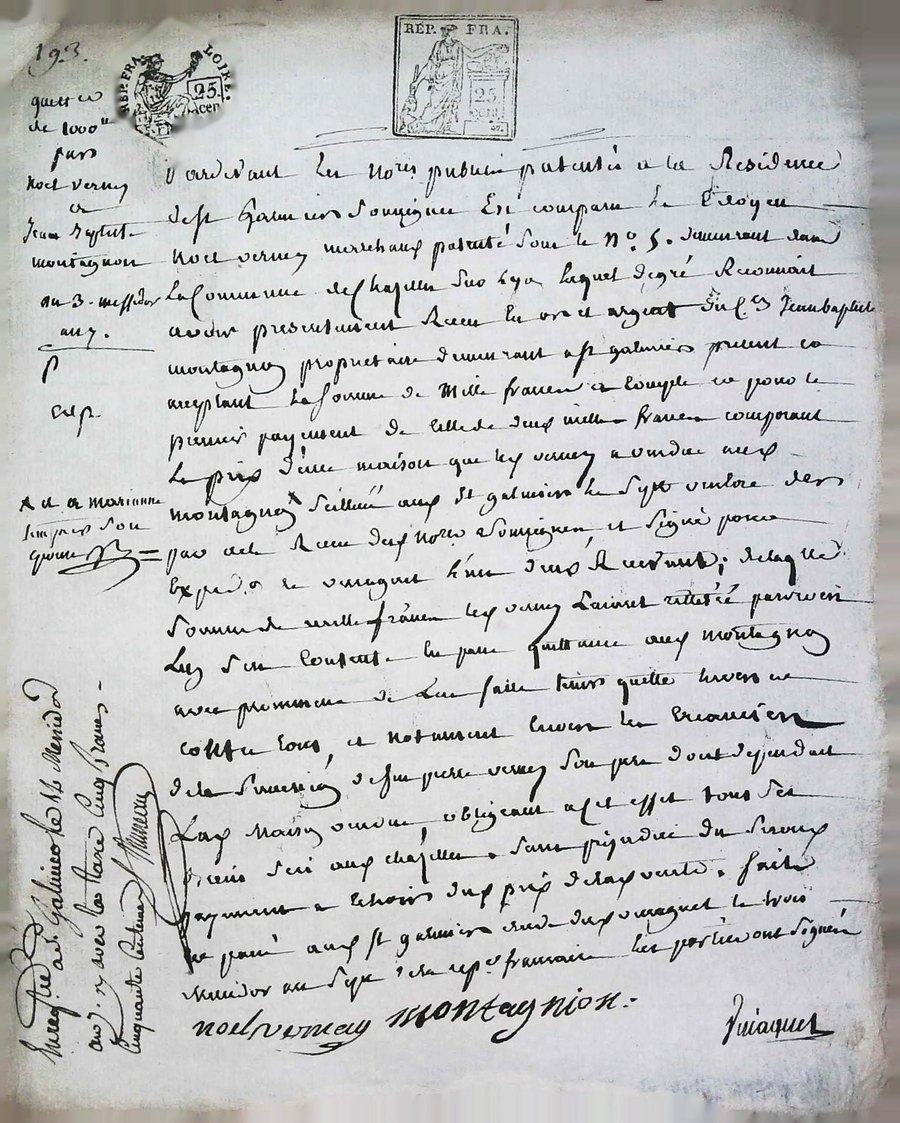 193.
REP. FRA.
LOIRE.
25
cen
REP. FRA.
25
quittce
de 1000tt
par
noel vernay
a
Jean Baptiste
montagnon
du 3. messidor
an 7.
exp.
pardevant les Nores publics patentés a la Residence
de st Galmier soussignés Est comparu le Citoyen
noel vernay marchand patenté sous le No. 5. demeurant dans
la Commune de Chazelles sur Lyon lequel de gré Reconnait
avoir presentement Recu en or et argent du Cen Jean baptiste
montagnon proprietaire demeurant a st galmier present et
acceptant la somme de Mille francs a compte et pour le
premier payement de celle de deux mille francs composant
le prix d'une maison que led vernay a vendue aud
montagnon x scituée aud st galmier le sept ders
par acte Recu desd nores soussignés et signé pour
Exped.on l'un desd Recevants; de laquelle
somme de mille francs led vernay
content en passe quittance aud montagnon
avec promesse de l'en faire tenir quitte envers et
contre tous, et notament envers les creanciers
de la succession de feu pierre vernay son pere dont dependait
lad Maison vendue obligeant a cet effet tous ses
biens sans prejudice du second
payement a echoir dud prix de lad vente. fait
et passé aud st galmier etude dud le trois
messidor an sept de la repe francaise les parties ont signés
x et a marianne
son
epouse
Enregtré a st Galmier le Messidor
an 7. Reçu cinq francs
cinquante centimes
noel vernay montagnion.